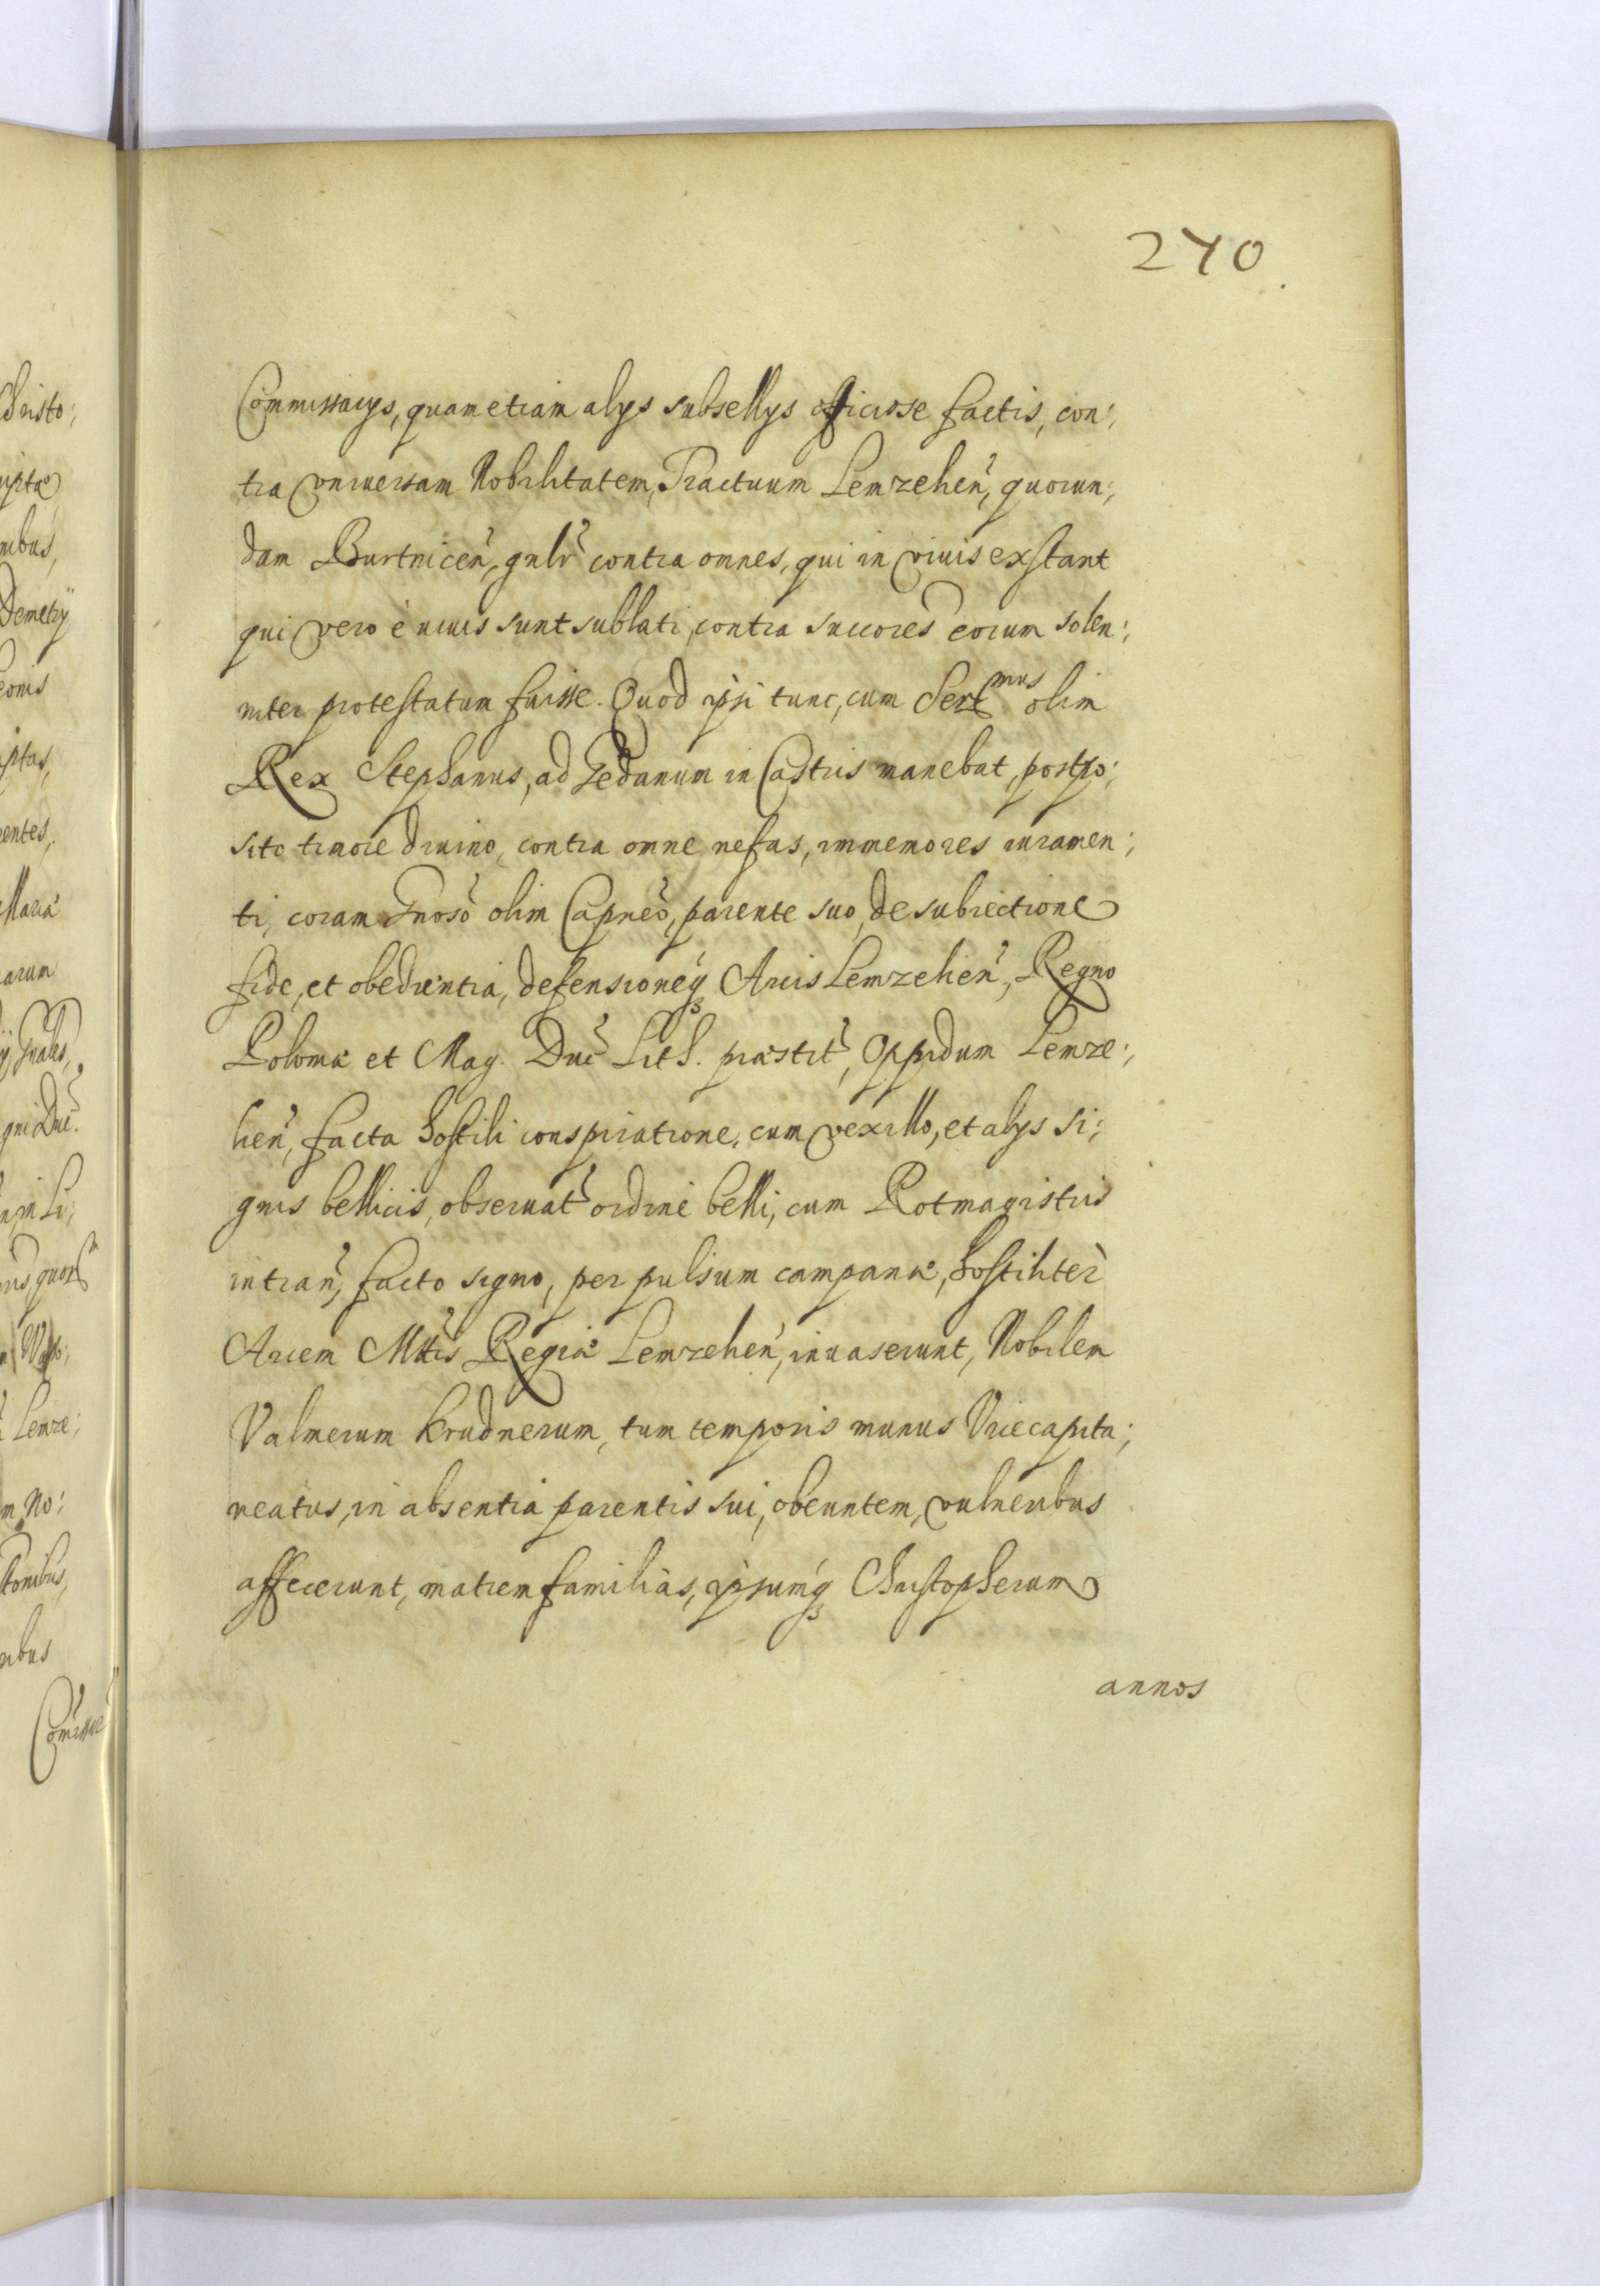 270
Commissarys, quam etiam alys subsellys officiose factis, con:
tra vniuersam Nobilitatem, Tractuum Lemzehen, quorun:
dam Burtnicen, gnlr contra omnes, qui in viuis exstant
qui vero è viuis sunt sublati, contra succores eorum solen:
niter protestatum fuisse. Quod ipsi tunc, cum Serᵐᵘˢ olim
Rex Stephanus, ad Gedanum in Castris manebat, postpo:
sito timore diuino, contra omne nefas, immemores iuramen:
ti, coram Gnoso olim Capneo, parente suo, de subiectione
fide, et obedientia, defensioneq Arcis Lemzehen, Regno
Poloniæ et Mag. Duc Lith. præstit, Oppidum Lemze:
hen, facta hostili conspiratione, cum vexillo, et alys si:
gnis bellicis, obseruat ordine belli, cum Rotmagistris
intran, facto signo, per pulsum campanæ, hostiliter
Arcem Mttis Regiæ Lemzehen, inuaserunt, Nobilem
Valmerum Krudnerum, tum temporis munus Vicecapita:
neatus, in absentia parentis sui, obeuntem, vulneribus
affecerunt, matremfamilias, ipsumq Christopherum
annos